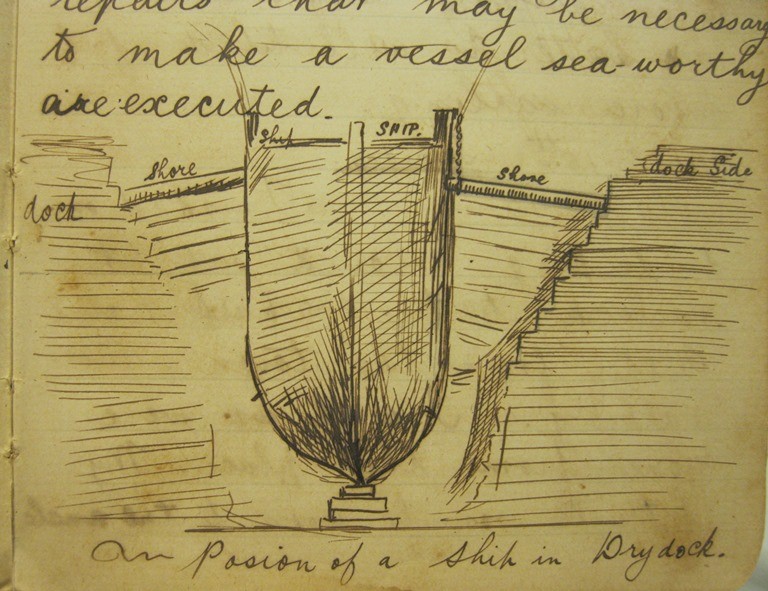 repairs that may be necessary
to make a vessel sea-worthy
are executed.
Ship SHIP.
Shore Shore
dock dock Side
An Posion of a Ship in Drydock.